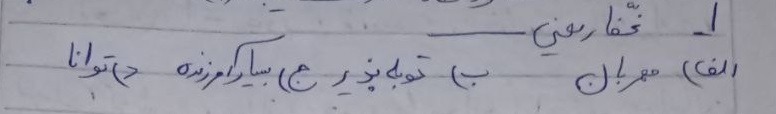 ۱ـ غفّار یعنی ـــــــــ
الف) مهربان ب) توبه پذیر ج) بسیار آمرزنده د) توانا